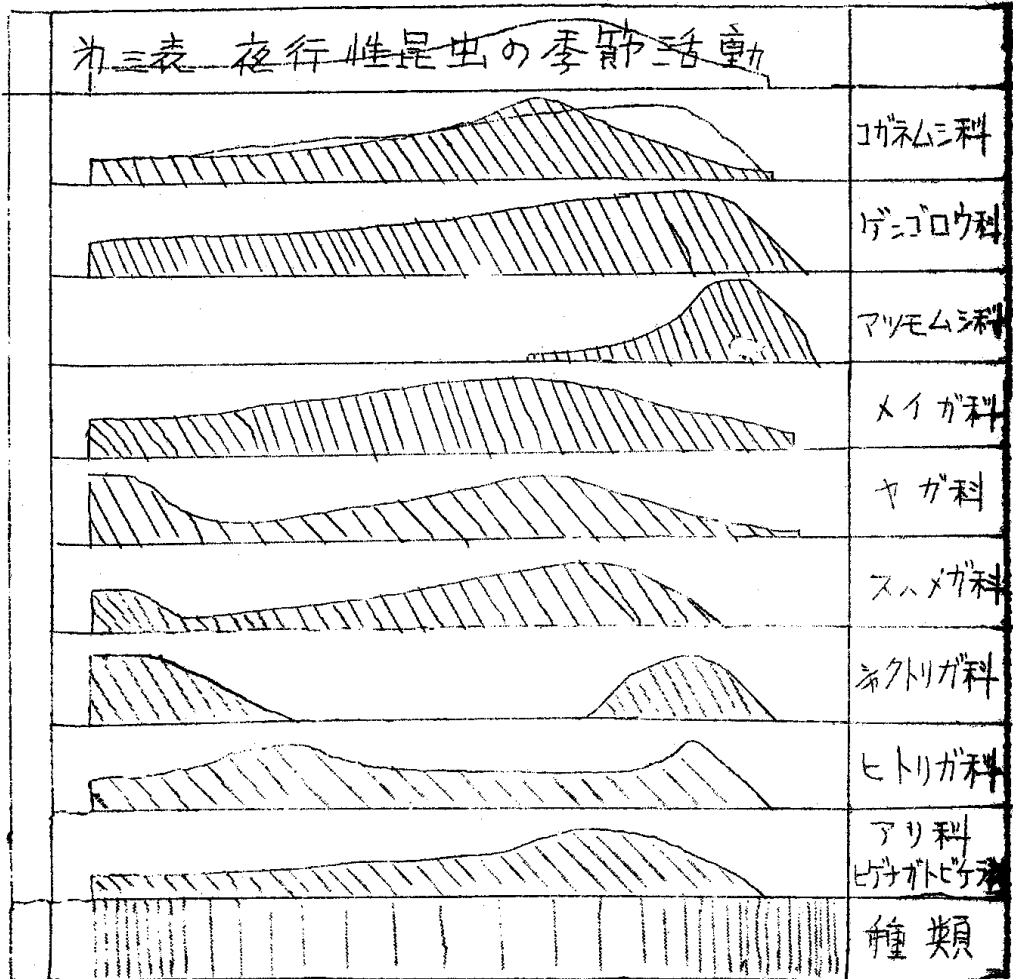 才三表 夜行性昆虫の季節活動
コガネムシ科
ゲンゴロウ科
マツモムシ科
メイガ科
ヤガ科
スヾメガ科
シャクトリガ科
ヒトリガ科
アリ科
ヒゲナガトビケラ科
種類